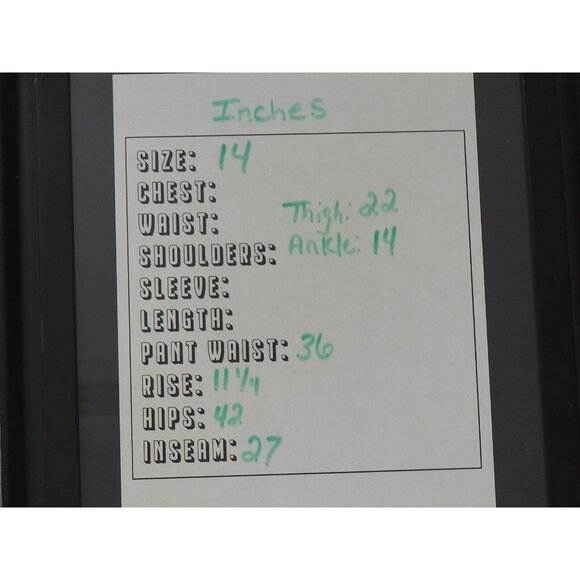 Inches
SIZE: 14
CHEST:
WAIST:
Thigh: 22
SHOULDERS:
Ankle: 14
SLEEVE:
LENGTH:
PANT WAIST: 36
RISE: 11 1/4
HIPS: 42
INSEAM: 27